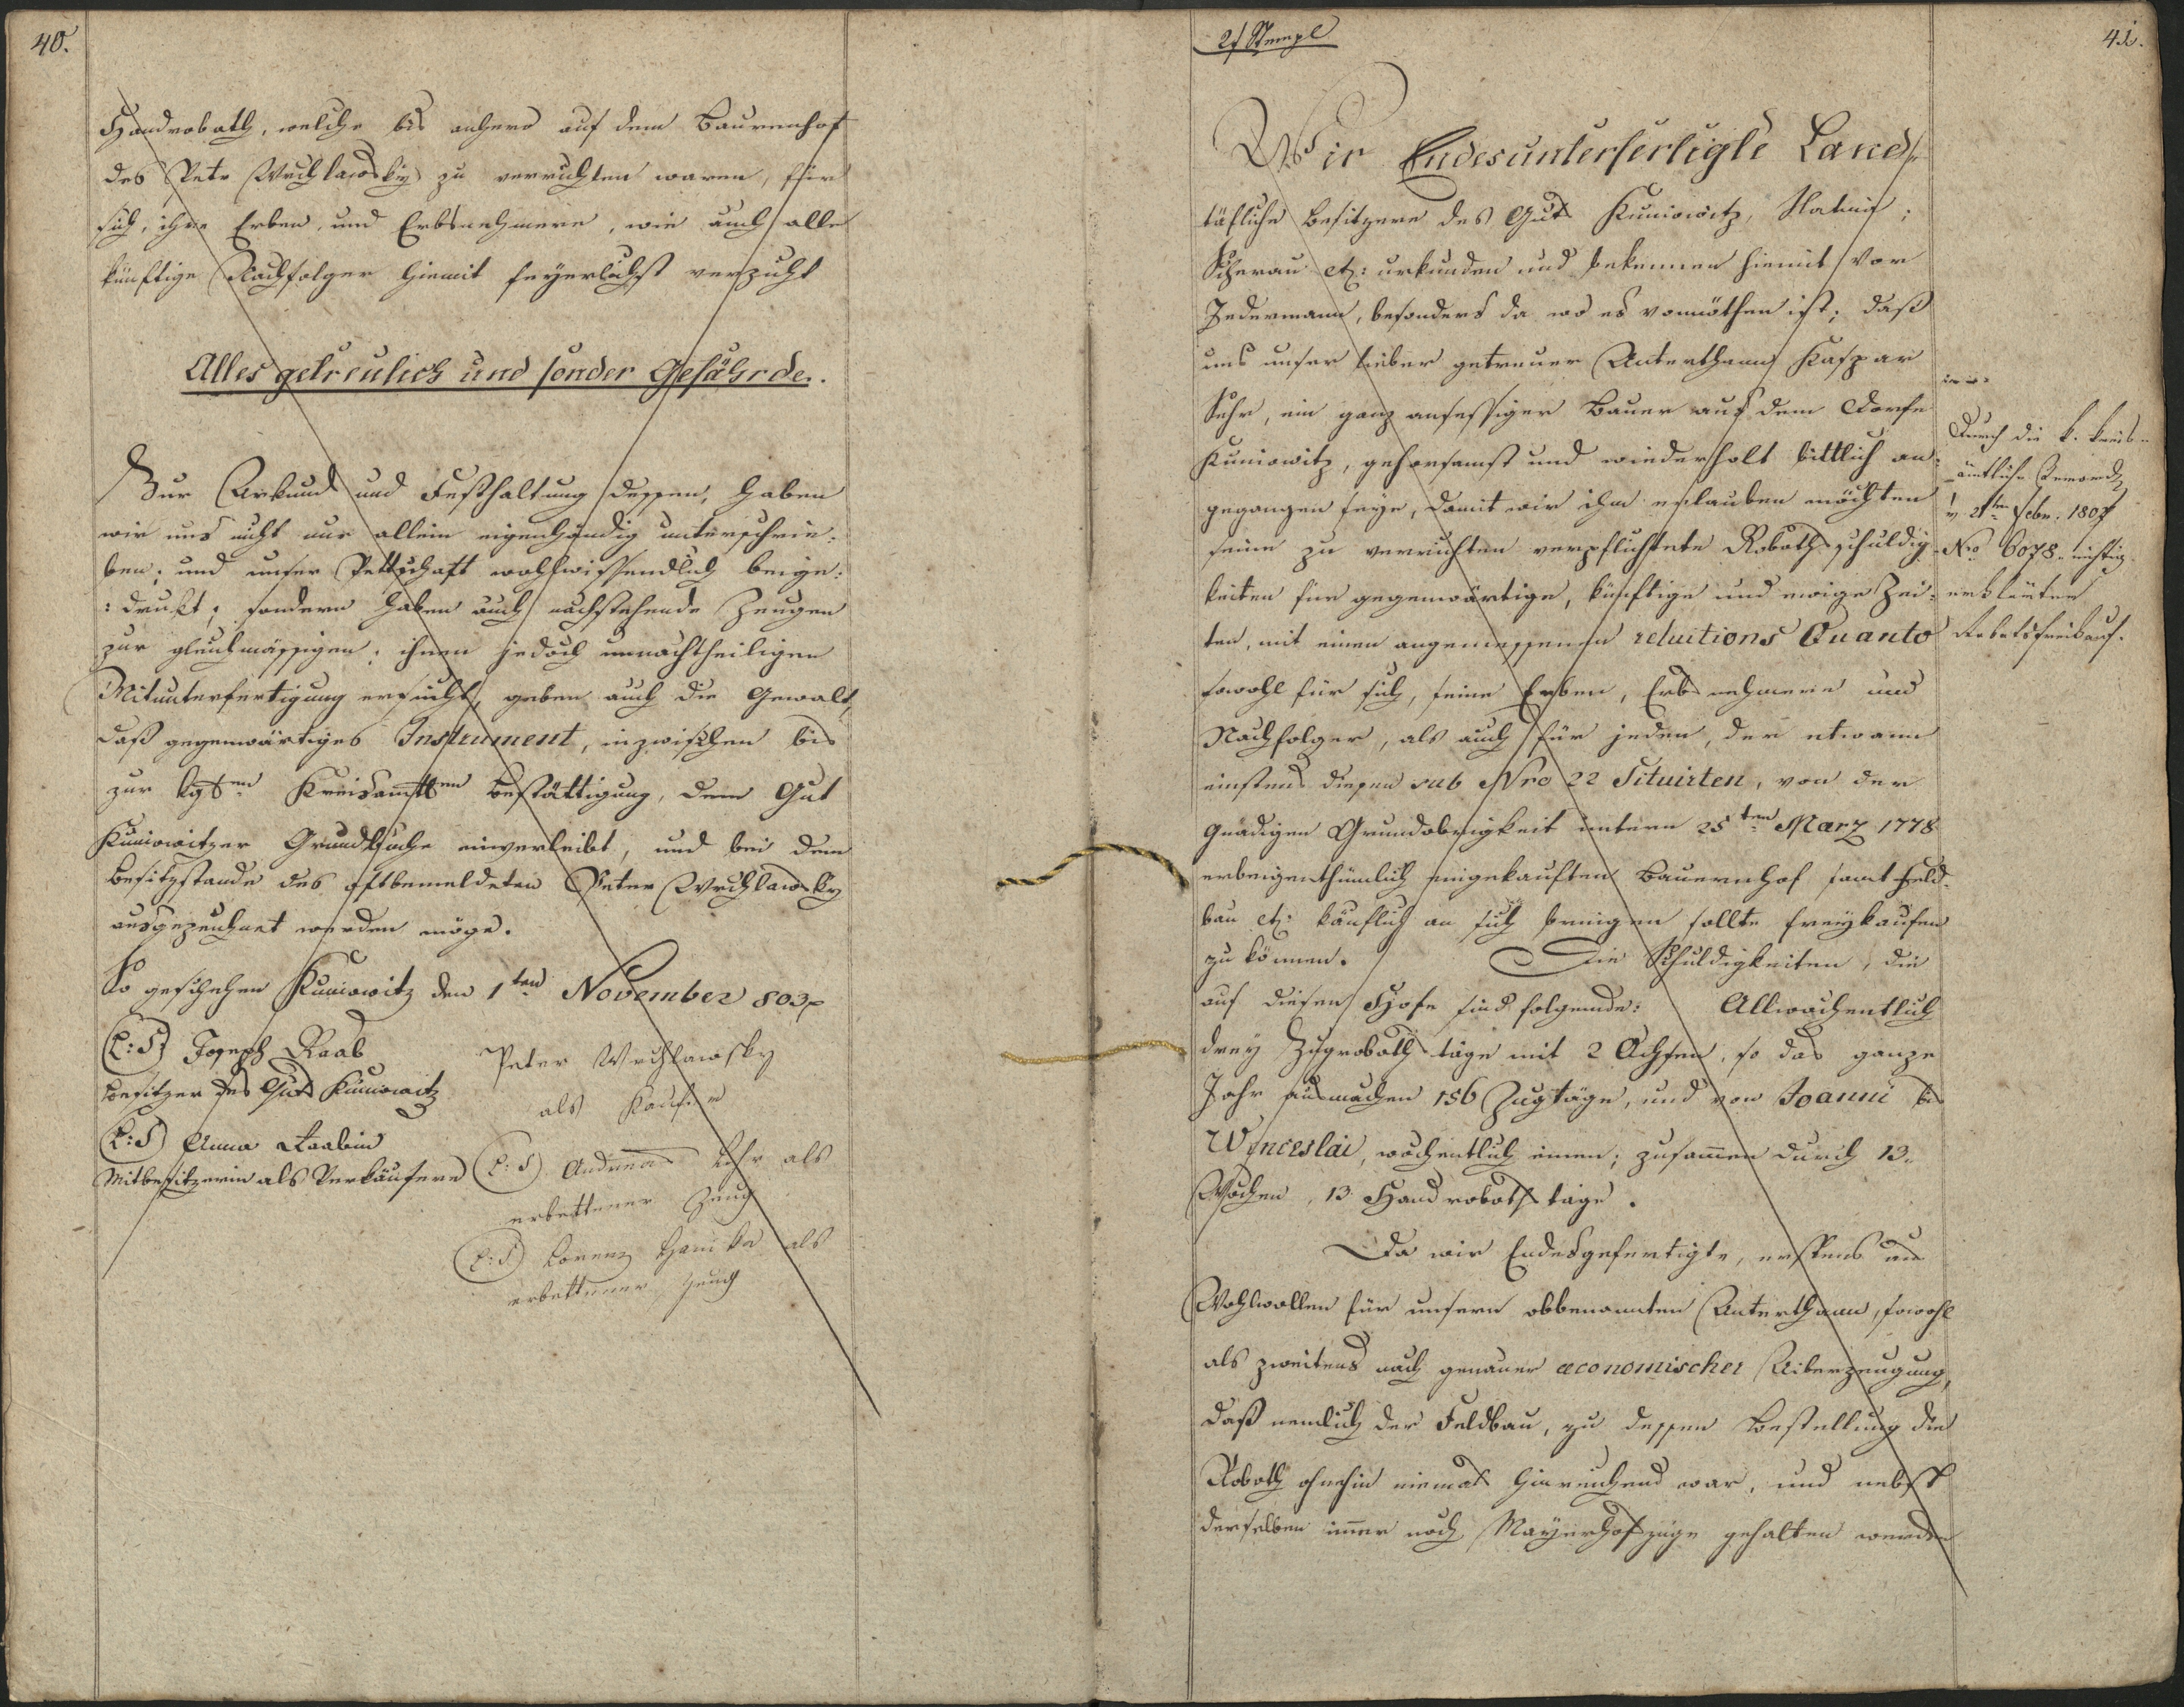 40.
Handrobath, welche bis anhero auf dem Baurenhof
des Petr Wrchlawsky zu verrichten waren, für
sich, ihre Erben, und Erbsnehmere, wie auch alle
künftige Nachfolger hiemit feyerlichst verzicht
Alles getreulich und sonder Gefährde.
Zur Urkund und Festhaltung dessen, haben
wir uns nicht nur allein eigenhändig unterschrie:
ben; und unser Pettschaft wohlwissendlich beyge:
:drukt; sondern haben auch nachstehende Zeugen
zur gleichmässigen; ihnen jedoch unnachtheiligen
Mitunterfertigung ersucht, geben auch die Gewalt,
daß gegenwärtiges Instrument, inzwischen bis
zur kgten Kreisamtten Bestättigung, dem Gut
Kuniowitzer Grundbuche einverleibt, und bei dem
Besitzstande des oftbemeldeten Peter Wrchlawsky
ausgezeichnet werden möge.
So geschehen Kuniowitz den 1ten November 803
(L:S) Joseph Raab
Besitzer des Guts Kuniowitz
(L:S) Anna Raabin
Mitbesitzerin als Verkäufere
Peter Wrchlawsky
als Kaufer
(L:S) Andreas Fehr als
erbettener Zeug
(L:S) Lorenz Hanika als
erbettener Zeug
2f Stempl
41.
Wir Endesunterfertigte Land-
täfliche Besitzere des Guts Kuniowitz, Slatina;
Scherau etz: urkunden und bekennen hiemit vor
Jedermann, besonders da wo es vonnöthen ist; daß
uns unser lieber getreuer Unterthann Kaspar
Fehr, ein ganz ansessiger Bauer aus dem Dorfe
Kuniowitz, gehorsamst und wiederholt bittlich an:
gegangen seye, damit wir ihm erlauben möchten
seine zu verrichten verpflichtete Robothschuldig-
keiten für gegenwärtige, künftige und ewige Zei:
ten, mit einen angemessenen reluitions Quanto
sowohl für sich, seine Erben, Erbsnehmere und
Nachfolger, als auch für jeden, der etwann
einstens diesen sub Nro 22 Situirten, von der
gnädigen Grundobrigkeit untern 25ten Marz 1778
erbeigenthümlich eingekauften Bauernhof samt Feld-
bau etz: käuflich an sich bringen sollte freykaufen
zu können. Die Schuldigkeiten, die
auf diesen Hofe sind folgende: Allwochentlich
drey Zugroboth täge mit 2 Ochsen, so das ganze
Jahr ausmachen 156 Zugtäge, und von Joanni bis
Wenceslai, wochentlich einen; zusamen durch 13.
Wochen, 13 Handroboth täge.
Da wir Endesgefertigte, erstens aus
Wohlwollen für unsern obbenannten Unterthann, sowohl
als zweitens nach genauer œconomischer Uiberzeugung,
daß nemlich der Feldbau, zu dessen Bestellung die
Roboth ohnehin niemals hinreichend war, und nebst
derselben immer noch Mayerhofzüge gehalten werden
Durch die k. kreis-
ämtliche
v 2ten Febr. 1807
Nro 6078. nichtig
erklärter
Robotsfreikauf.